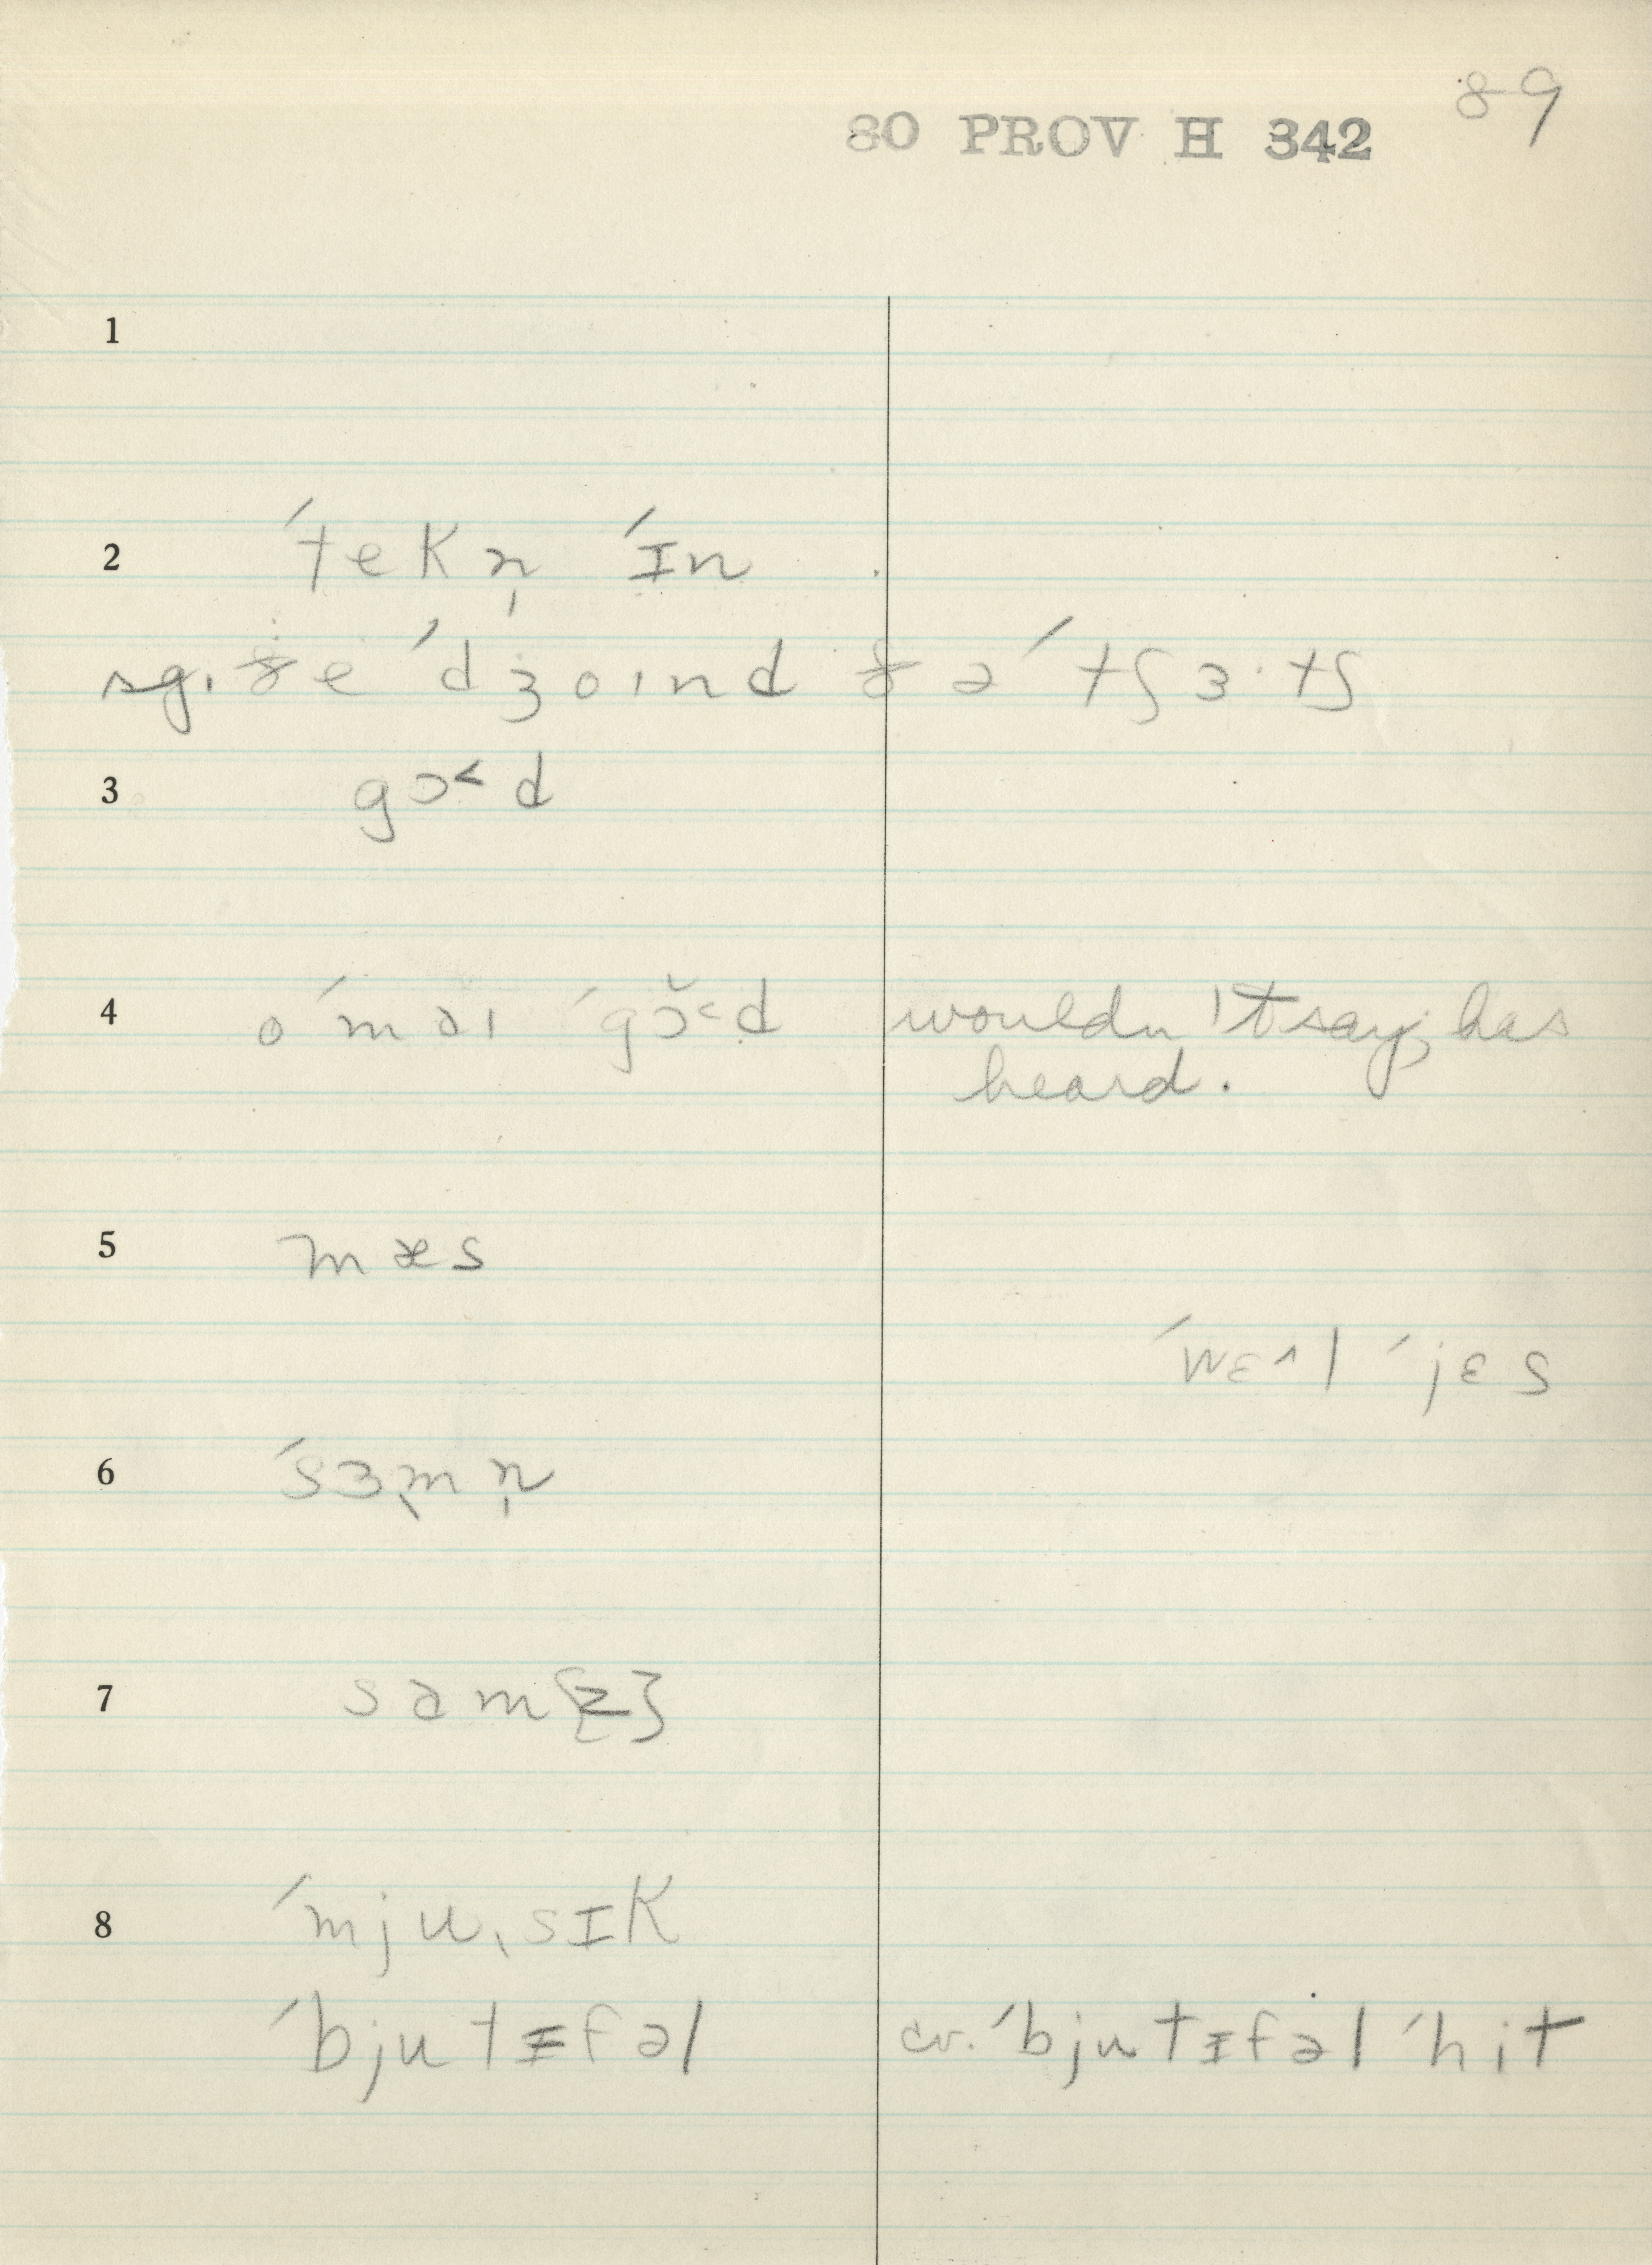 89
80 PROV H 342
1
2 ˊtekn̩ ˊɪn
sg. ðe ˊdʒoind ðə ˊtʃɜ·tʃ
3 gɔ˂d
4 oˊməı ˊgɔ̆˂d wouldn't say, has
heard.
5 mæs
ˊwɛ˄l ˊjɛs
6 ˊsɜ˛mn̩
7 səm{z}
8 ˊmjuˎsɪk
ˊbjutɪfəl cv. ˊbjutɪfəl ˊhit